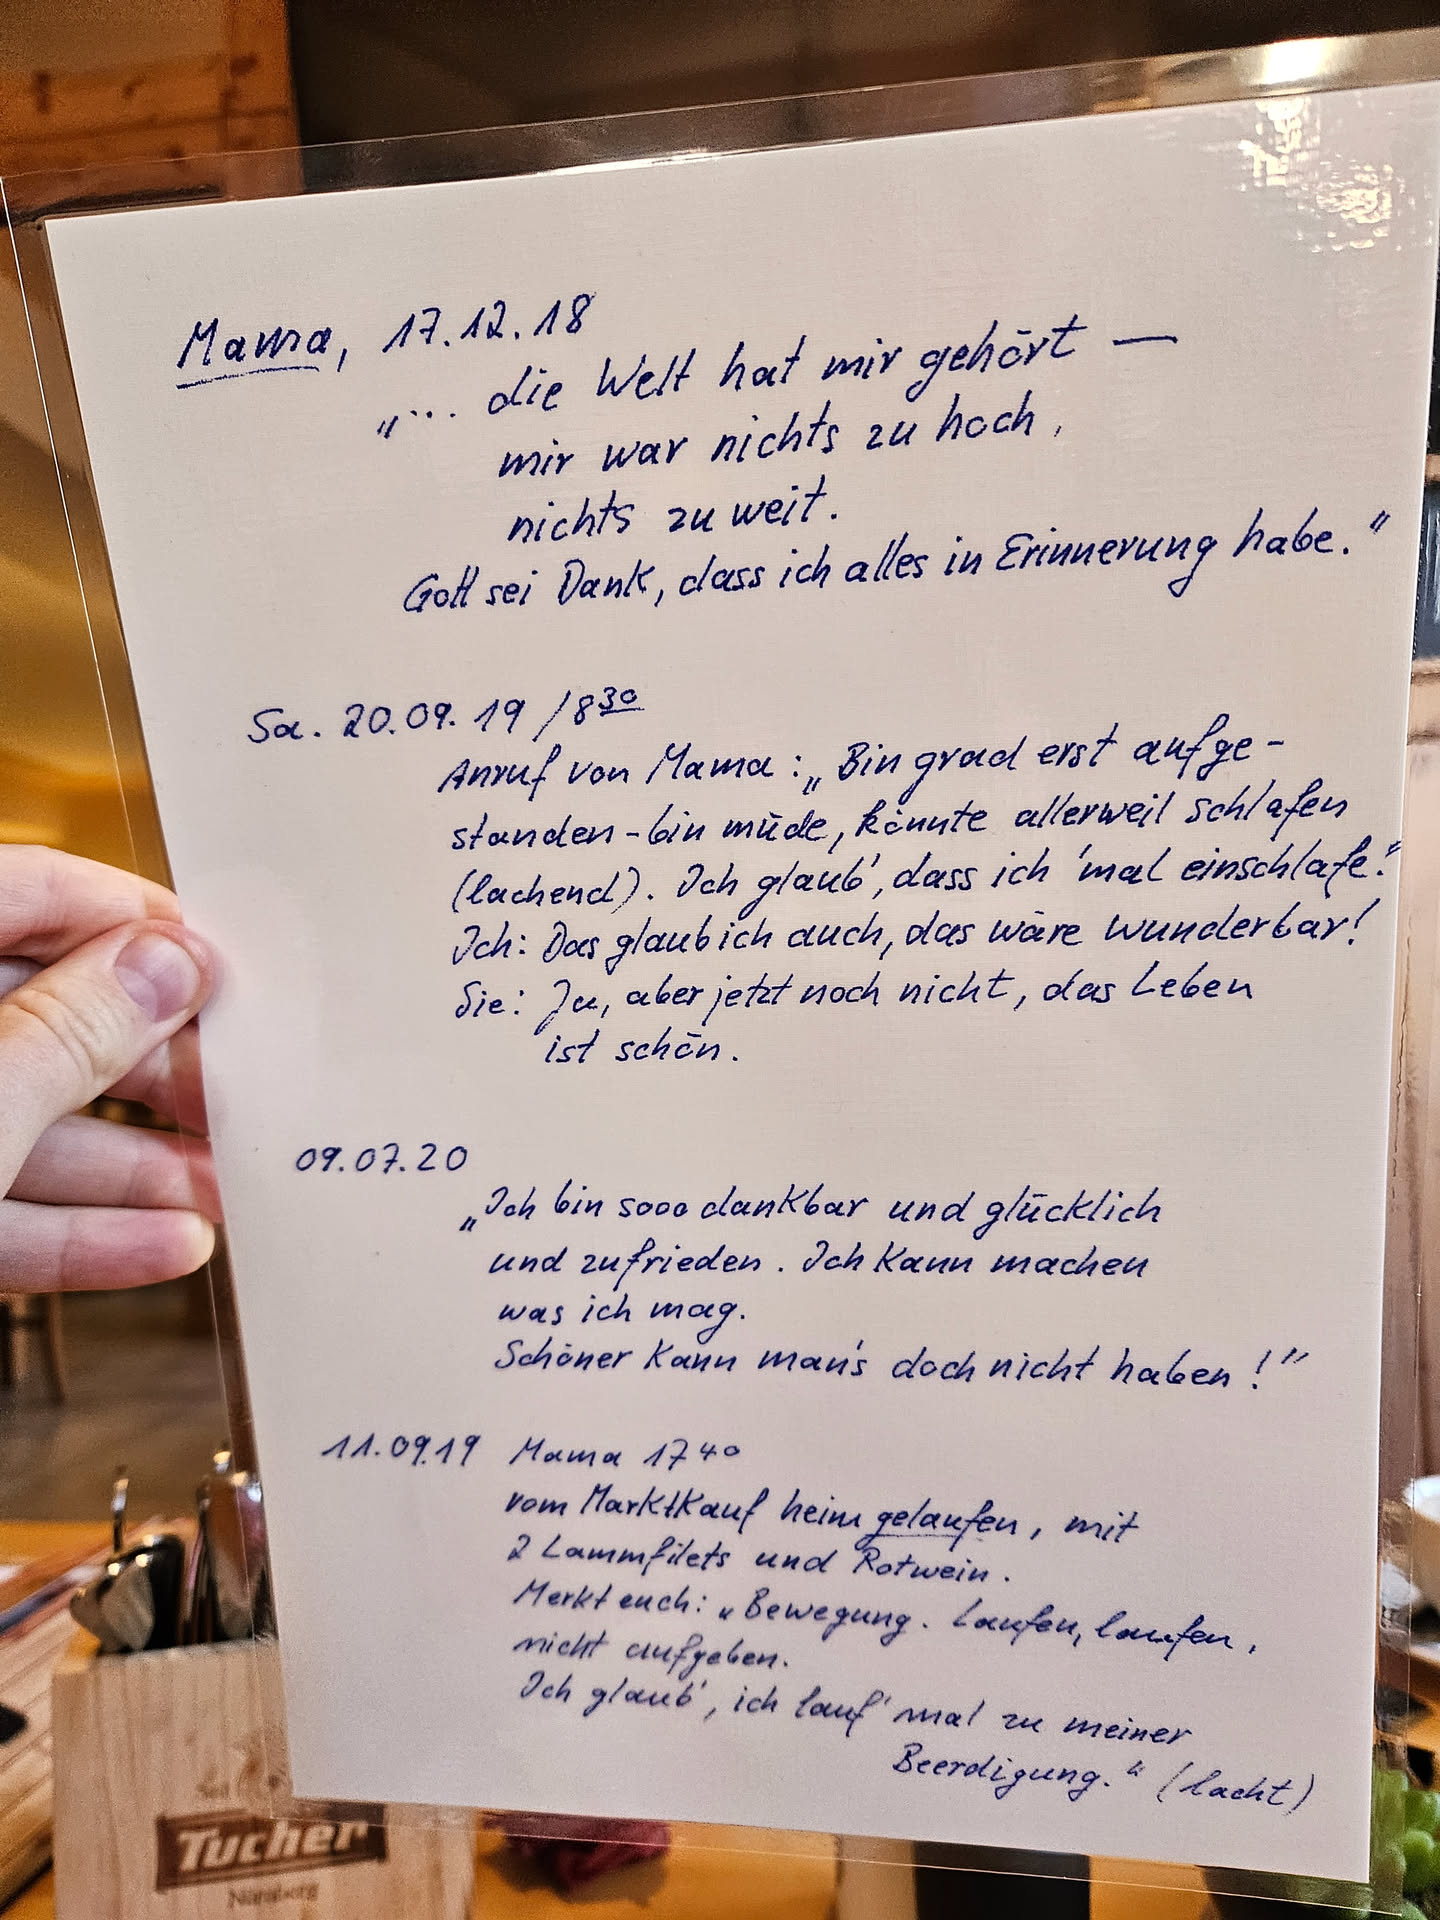 Mama, 17.12.18
„... die Welt hat mir gehört —
mir war nichts zu hoch,
nichts zu weit.
Gott sei Dank, dass ich alles in Erinnerung habe."
Sa. 20.09.19 /8³⁰
Anruf von Mama: „Bin grad erst aufge-
standen - bin müde, könnte allerweil schlafen
(lachend). Ich glaub', dass ich 'mal einschlafe."
Ich: Das glaub ich auch, das wäre wunderbar!
Sie: Ja, aber jetzt noch nicht, das Leben
ist schön.
09.07.20
„Ich bin sooo dankbar und glücklich
und zufrieden. Ich kann machen
was ich mag.
Schöner kann man's doch nicht haben!"
11.09.19 Mama 17⁴⁰
vom Marktkauf heim gelaufen, mit
2 Lammfilets und Rotwein.
Merkt euch: „Bewegung. Laufen, laufen,
nicht aufgeben.
Ich glaub', ich lauf' mal zu meiner
Beerdigung." (lacht)
Tucher
Nürnberg